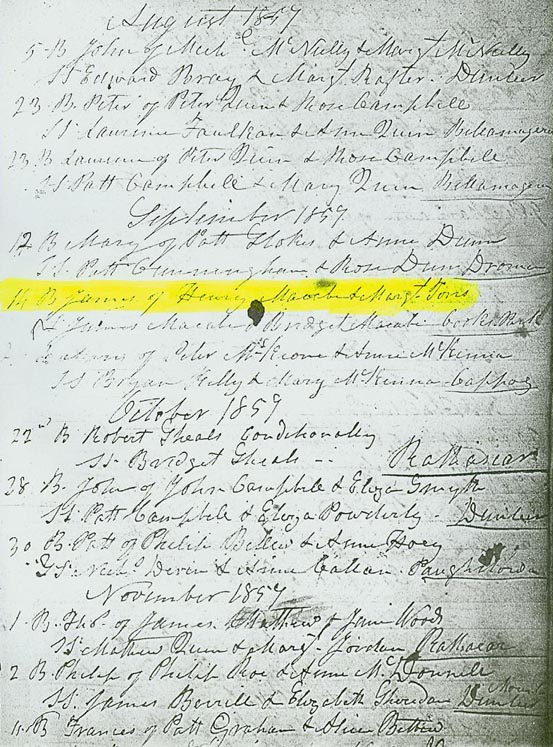 August 1857
5 B. John of Mich. McNally & Margt McNally
SS Edward Bray & Margt Rafter Dunleer
23 B. Peter of Peter Quinn & Rose Campbell
SS Laurence Faulkan & Ann Quin
23 B Laurence of Peter Quin & Rose Campbell
SS Patt Campbell & Mary Quin
September 1857
12 B Mary of Patt Stokes & Anne Dunn
SS Patt Cunningham & Rose Dunn
14 B James of Henry Macabe & Margt
James Macabe & Bridget Macabe
of Peter & Anne McKenna
SS Bryan Kelly & Mary McKenna Cappog
October 1857
22nd B Robert Sheals Conditionally
SS Bridget Sheals - - Rathescar
28 B. John of John Campbell & Eliza Smyth
SS Patt Campbell & Eliza Powderly - Dunleer
30 B. Patt of Philip Bellew & Anne Hoey
SS Nichs Deven & Anne Callan
November 1857
1. B. Ths. of James Mathew & Jane Woods
SS Mathew Quin & Margt Jordan Rathescar
2 B. Philip of Philip Roe & Anne McDonnell
SS. James Berrill & Elizabeth Sheridan
11. B Frances of Patt Graham & Alice